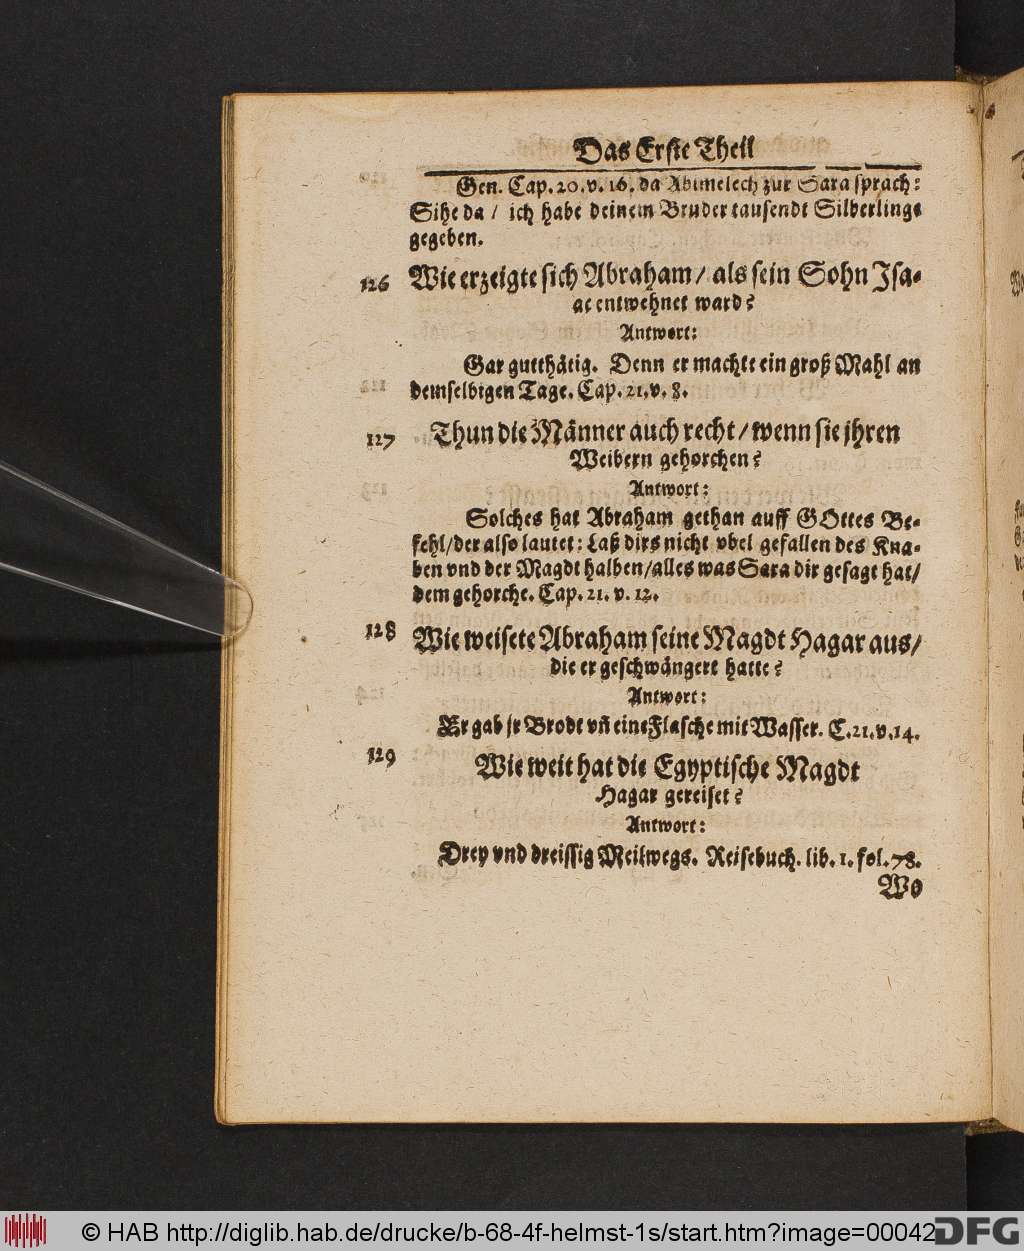 Das Erste Theil
Gen. Cap. 20. v. 16. da Abimelech zur Sara sprach:
Sihe da / ich habe deinem Bruder tausendt Silberlinge
gegeben.
126 Wie erzeigte sich Abraham / als sein Sohn Isa-
ac entwehnet ward?
Antwort:
Gar gutthätig. Denn er machte ein groß Mahl an
demselbigen Tage. Cap. 21. v. 8.
127 Thun die Männer auch recht / wenn sie jhren
Weibern gehorchen?
Antwort:
Solches hat Abraham gethan auff GOttes Be-
fehl / der also lautet: Laß dirs nicht vbel gefallen des Kna-
ben vnd der Magdt halben / alles was Sara dir gesagt hat /
dem gehorche. Cap. 21. v. 12.
128 Wie weisete Abraham seine Magdt Hagar aus /
die er geschwängert hatte?
Antwort:
Er gab jr Brodt vñ eine Flasche mit Wasser. C. 21. v. 14.
129 Wie weit hat die Egyptische Magdt
Hagar gereiset?
Antwort:
Drey vnd dreissig Meilwegs. Reisebuch. lib. 1. fol. 78.
Wo
© HAB http://diglib.hab.de/drucke/b-68-4f-helmst-1s/start.htm?image=00042
DFG